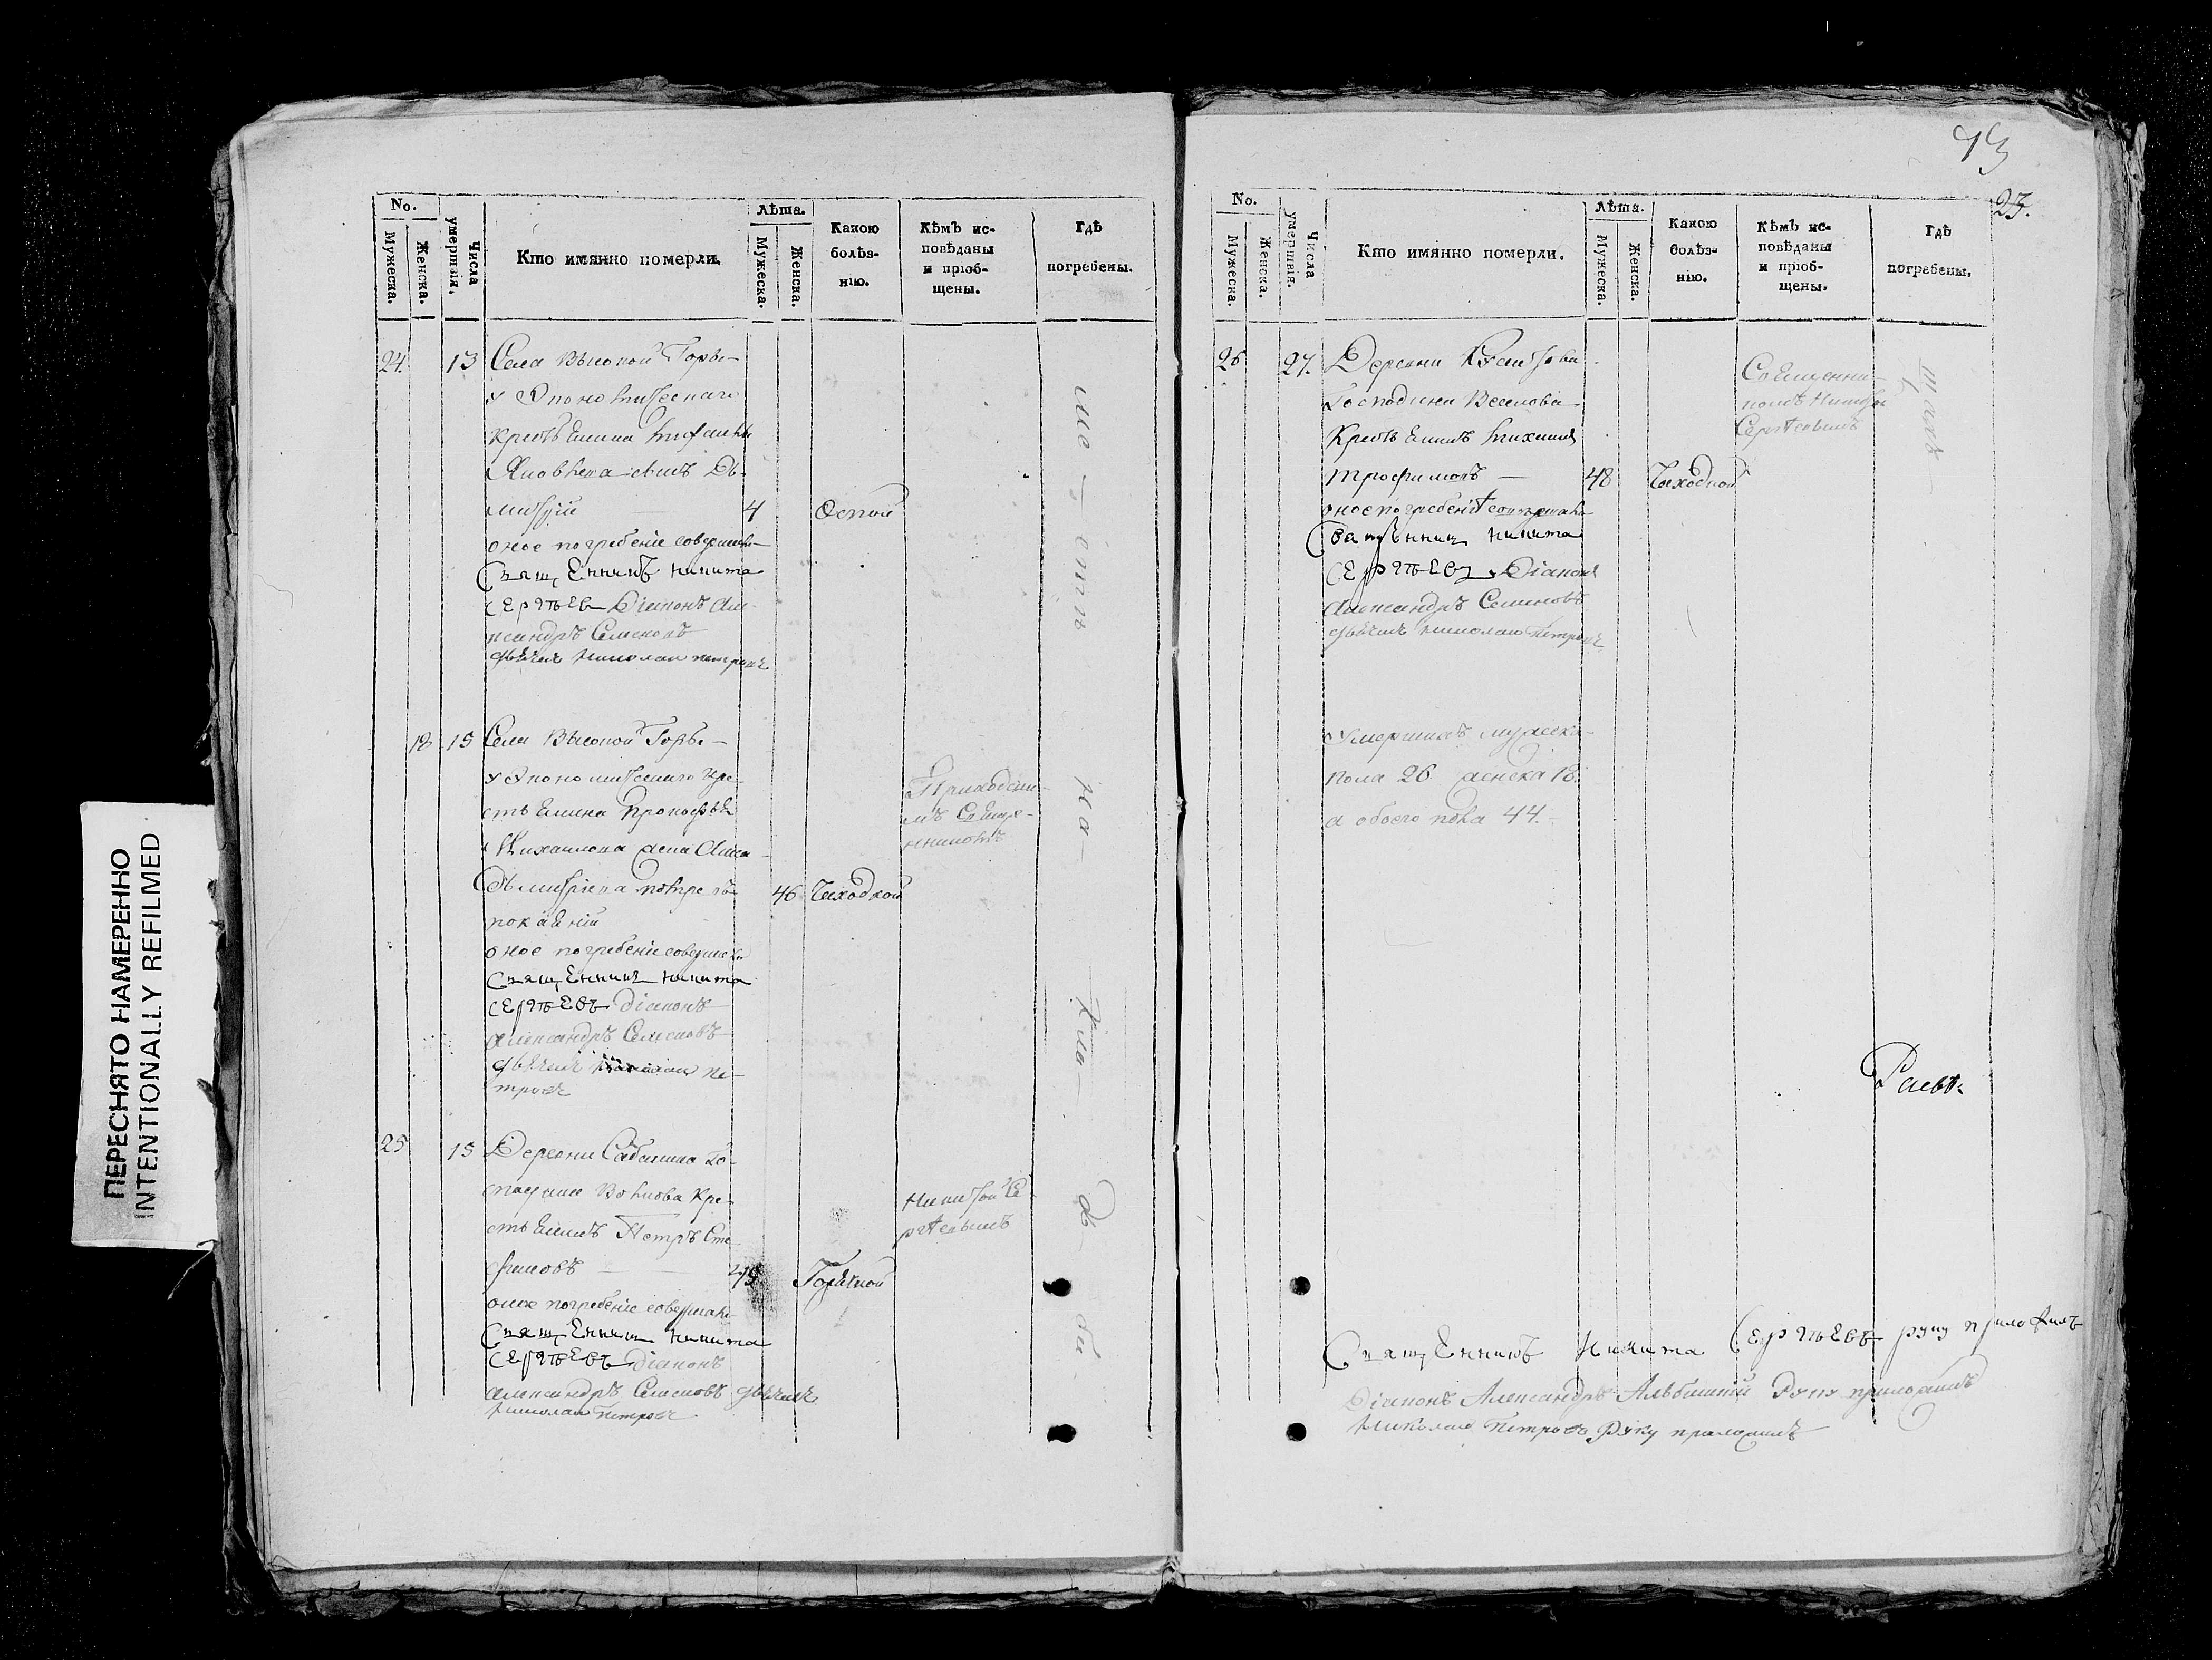 ПЕРЕСНЯТО НАМЕРЕННО
INTENTIONALLY REFILMED
No.
Мужеска.
Женска.
Числа умершвія.
Кто имянно померли.
Лѣта.
Мужеска.
Женска.
Какою болѣз-
нію.
Кѣмъ ис-
повѣданы
и пріоб-
щены.
Гдѣ
погребены.
24. 13 Села Высокой Горы
Экономическаго
Дми-
трій 4 Оспой
оное погребеніе совершали
Священникъ Никита
Сергѣевъ Діаконъ Але-
ксандръ Семеновъ
дьячекъ Николай Петровъ
18 15 Села Высокой Горы
Экономическаго кре-
стьянина Прокофья
Михайлова жена
Дьмитріева 46 Чахоткой
покаяніи
оное погребеніе совершали
Священникъ Никита
Сергѣевъ Діаконъ
Александръ Семеновъ
дьячекъ Николай Пе-
тровъ
Приходски-
мъ Свяще-
нникомъ
25 15 Деревни Го-
Волкова Кре-
стьянинъ Петръ Сте-
фановъ Горячкой
оное погребеніе совершали
Священникъ Никита
Сергѣевъ Діаконъ
Александръ Семеновъ дьячекъ
Николай Петровъ
Никитой Се
ргѣевымъ
ме сть
на
Кла
д
би
73
23.
No.
Мужеска.
Женска.
Числа умершвія.
Кто имянно померли.
Лѣта.
Мужеска.
Женска.
Какою
болѣз-
нію.
Кѣмъ ис-
повѣданы
и пріоб-
щены.
Гдѣ
погребены.
26 27. Деревни
Господина Веселова
Крестьянинъ
Трофимовъ 48 Чахоткой
оное погребеніе совершали
Священникъ Никита
Сергѣевъ Діаконъ
Александръ Семеновъ
дьячекъ Николай Петровъ
Священни-
комъ Никитой
Сергѣевымъ
щахъ
Умершихъ мужеска
пола 26 женска 18
а обоего пола 44.
Священникъ Никита Сергѣевъ руку приложилъ
Діаконъ Александръ руку приложилъ
Николай Петровъ руку приложилъ